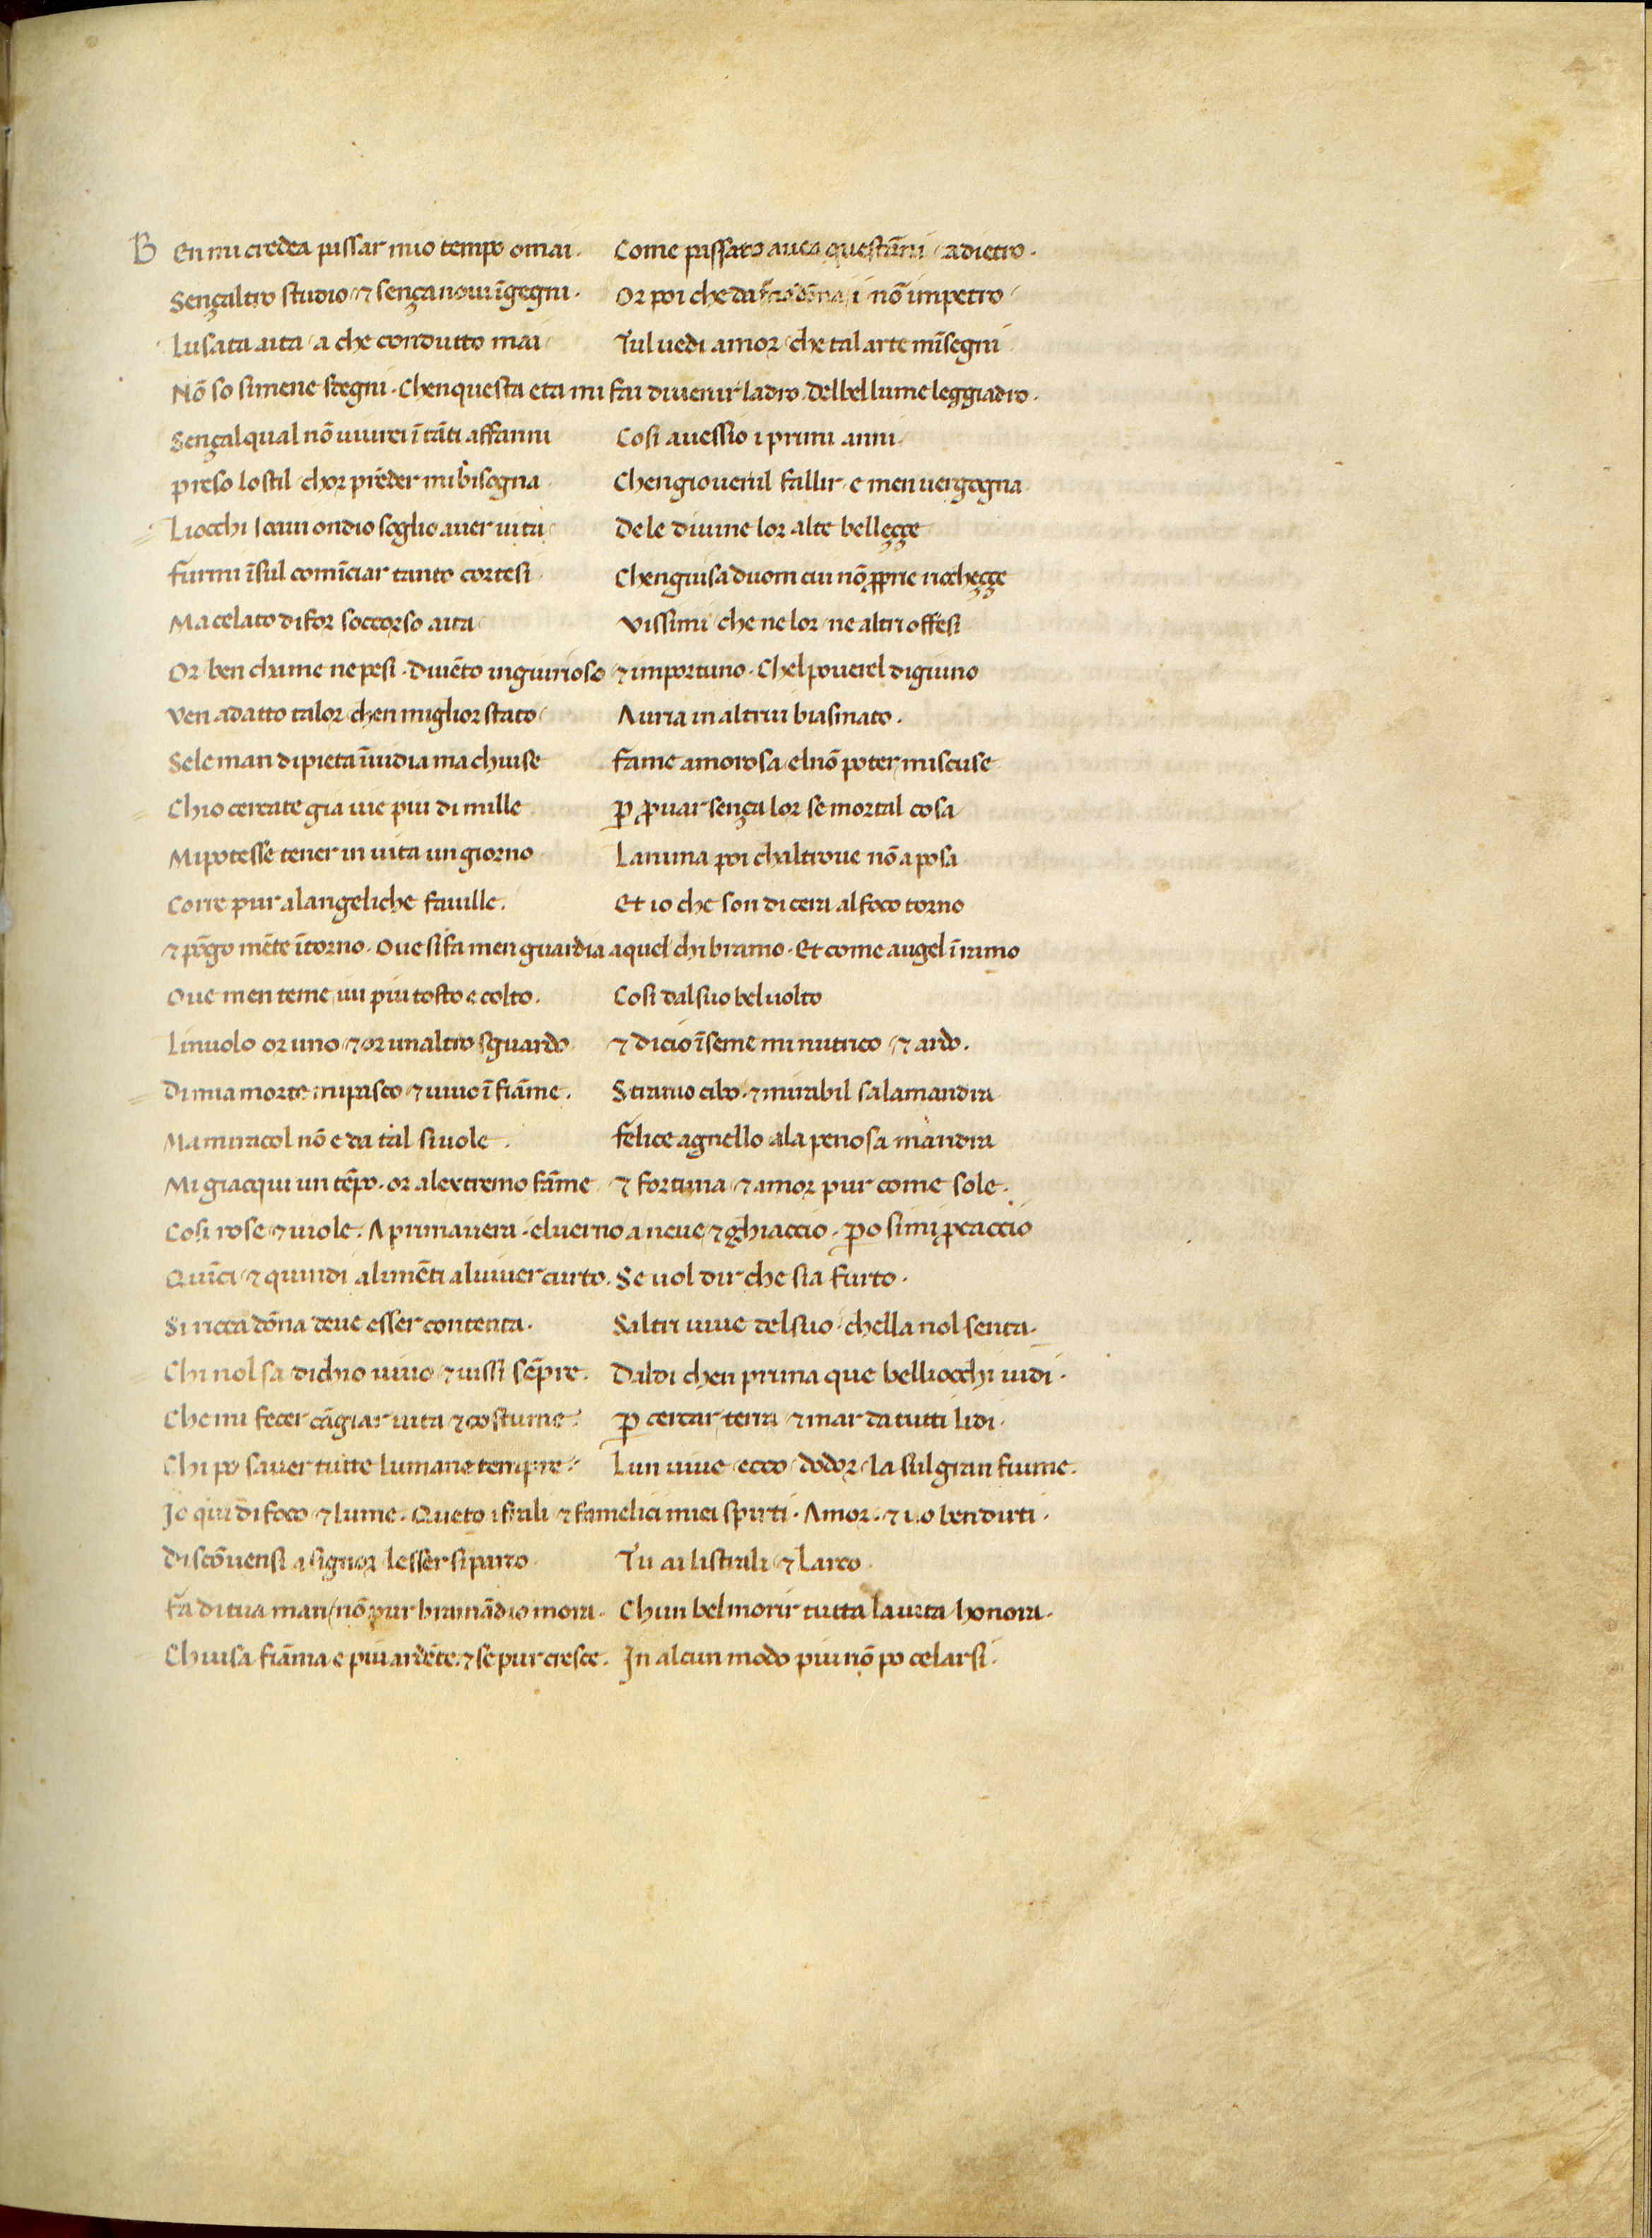 BEn mi credea passar mio tempo omai. Come passato avea questāni adietro.
Sençaltro studio ⁊ sença novi īgegni. Or poi che da mā dōna i nō impetro
Lusata aita a che condutto mai Tul vedi amor che tal arte mīsegni
Nō so simene sdegni. Chenquesta eta mi fai divenir ladro. Delbellume leggiadro.
Sençalqual nō vivrei ī tāti affanni Cosi avessio i primi anni
preso lostil chor prēder mi bisogna Chengiovenil fallir e men vergogna
Liocchi soavi ondio soglio aver vita Dele divine lor alte belleçe
furmi īsul comīciar tanto cortesi Chenguisa duom cui nō ꝓprie riccheçe
Ma celato difor soccorso aita Vissimi che ne lor ne altri offesi
Or ben chame ne pesi. Divēto ingiurioso ⁊ importuno. Chel poverel digiuno
Ven adatto talor chen miglior stato Avria in altrui biasmato.
Sele man dipieta īvidia ma chiuse fame amorosa elnō poter miscuse
Chio cercate gia vie piu di mille ꝑ ꝓvar sença lor se mortal cosa
Mi potesse tener in vita un giorno Lanima poi chaltrove nō a posa
Corre pur alangeliche faville. Et io che son di cera al foco torno
⁊ pōgo mēte ītorno. Ove sifa men guardia aquel chi bramo. Et come augel ī ramo
Ove men teme ivi piu tosto e colto. Cosi dalsuo bel volto
Linvolo or uno ⁊ or unaltro sguardo ⁊ dicio īseme mi nutrico ⁊ ardo.
Di mia morte mi pasco ⁊ vivo ī fiāme. Stranio cibo. ⁊ mirabil salamandra
Ma miracol nō e da tal si vole. felice agnello ala penosa mandra
Mi giacqui un tēpo. or alextremo fāme ⁊ fortuna ⁊ amor pur come sole.
Cosi rose ⁊ viole. A primavera. elverno a neve ⁊ ghiaccio. ꝑo simi ꝓcaccio
Quīci ⁊ quindi alimēti alviver curto. Se vol dir che sia furto.
Si ricca dōna deve esser contenta. Saltri vive delsuo chella nol senta.
Chi nol sa dichio vivo ⁊ vissi sēpre. Daldi chen prima que belliocchi vidi.
Che mi fecer cāgiar vita ⁊ costume ꝑ cercar terra ⁊ mar da tutti lidi.
Chi po saver tutte lumane tempre Lun vive ecco dodor la sul gran fiume.
Jo qui di foco ⁊ lume. Queto i frali ⁊ famelici miei spirti. Amor. ⁊ vo ben dirti.
Discōvensi a signor lesser si parco Tu ai li strali ⁊ larco
fa di tua man nō pur bramādio mora. Chun bel morir tutta la vita honora.
Chiusa fiāma e piu ardēte. ⁊ se pur cresce. In alcun modo piu nō po celarsi.